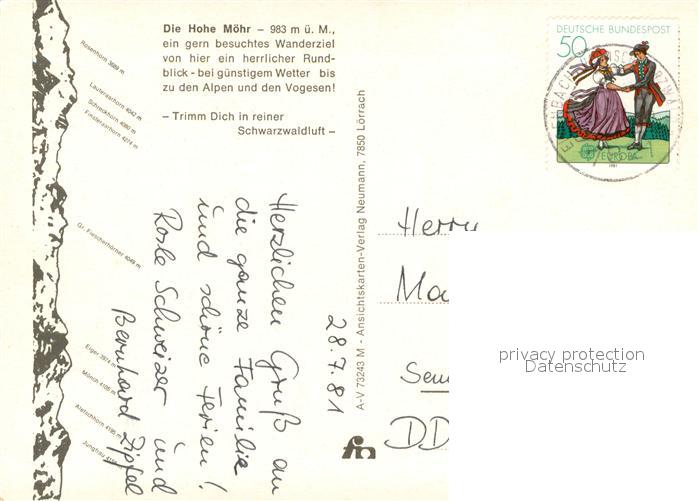 Die Hohe Möhr – 983 m ü. M.,
ein gern besuchtes Wanderziel
von hier ein herrlicher Rund-
blick - bei günstigem Wetter bis
zu den Alpen und den Vogesen!
– Trimm Dich in reiner
Schwarzwaldluft –
Rosenhorn 3689 m
Lauteraarhorn 4042 m
Schreckhorn 4080 m
Finsteraarhorn 4274 m
Gr. Fiescherhörner 4049 m
Eiger 3974 m
Mönch 4105 m
Aletschhorn 4195 m
Jungfrau
28.7.81
Herzlichen Gruß an
die ganze Familie
und schöne Ferien!
Rosle Schweizer und
Bernhard Zipfel
A-V 73243 M - Ansichtskarten-Verlag Neumann, 7850 Lörrach
DEUTSCHE BUNDESPOST
50
EUROPA
1981
Herrn
Ma
Sem
DD
privacy protection
Datenschutz